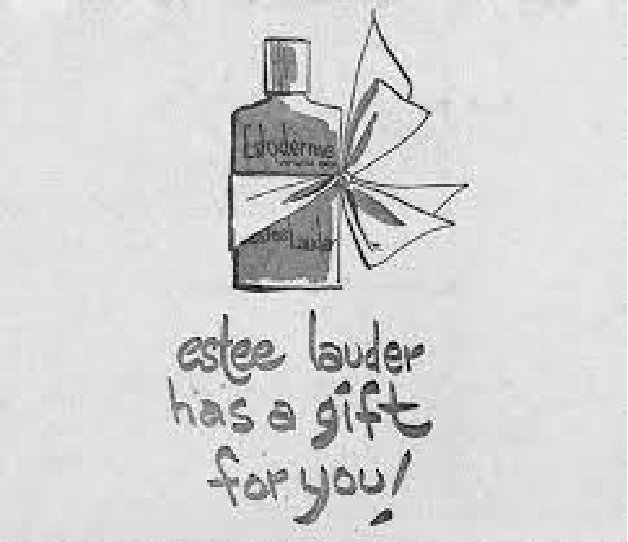 Estoderme
Estee Lauder
estee lauder
has a gift
for you!